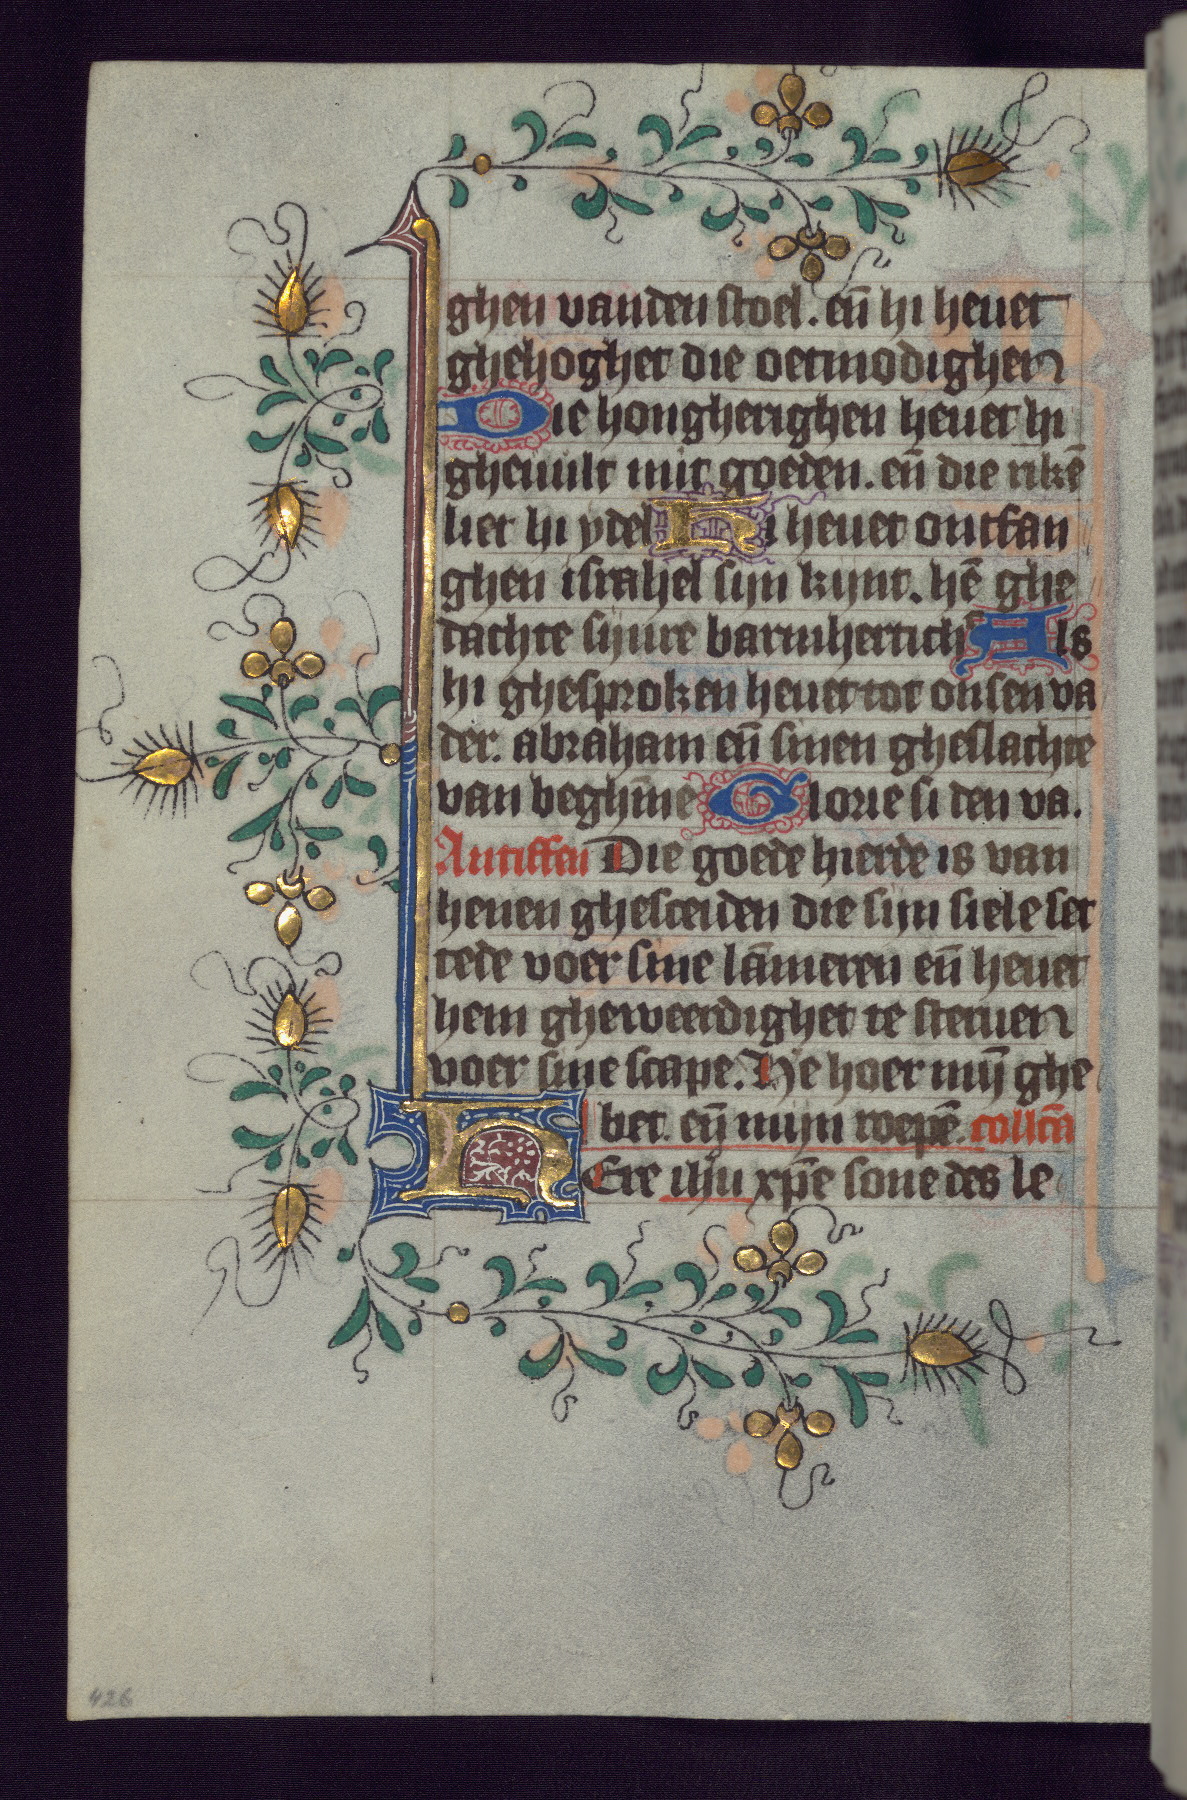 ghen vanden stoel. en̄ hi heuet
ghehoghet die oetmodighen
Die hongherighen heuet hi
gheuult mit goeden. en̄ die rikē
liet hi ydel Hi heuet ontfan
ghen israhel sijn kijnt. hē ghe
dachte sijnre barmhertich Als
hi ghesproken heuet tot onsen va
der. abraham en̄ sinen gheslachte
van beghīne Glorie si den va.
Antiffen Die goede hierde is van
heuen ghesceiden die sijn siele set
tede voer sine lāmeren en̄ heuet
hem gheweerdighet te steruen
voer sine scape. He hoer mij̄ ghe
bet. en̄ mijn roepē. collcā
HEre ihū xp̄e sone des le
426